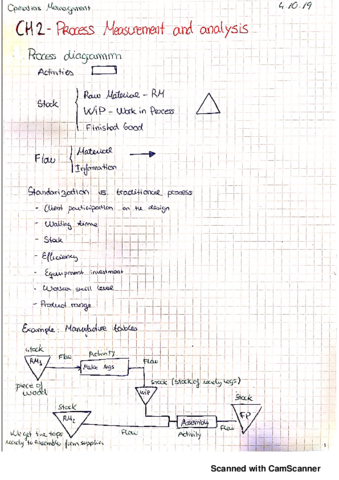 Operations Management
4.10.19
CH2 - Process Measurement and analysis
Process diagramm
Activities
Stock
Raw Material - RM
WiP - Work in Process
Finished Good
Flow
Material
Information
Standarization vs. traditional process
- Client participation on the design
- Waiting time
- Stock
- Efficiency
- Equipment investment
- Worker skill level
- Product range
Example: Manufacture tables
Stock
Flow
Activity
Flow
RM1
Make legs
piece of wood
Stock (Stock of ready legs)
WiP
Stock
RM2
Flow
Assembly
Activity
Flow
Stock
FP
We get the tops
ready to assemble from supplier
1
Scanned with CamScanner